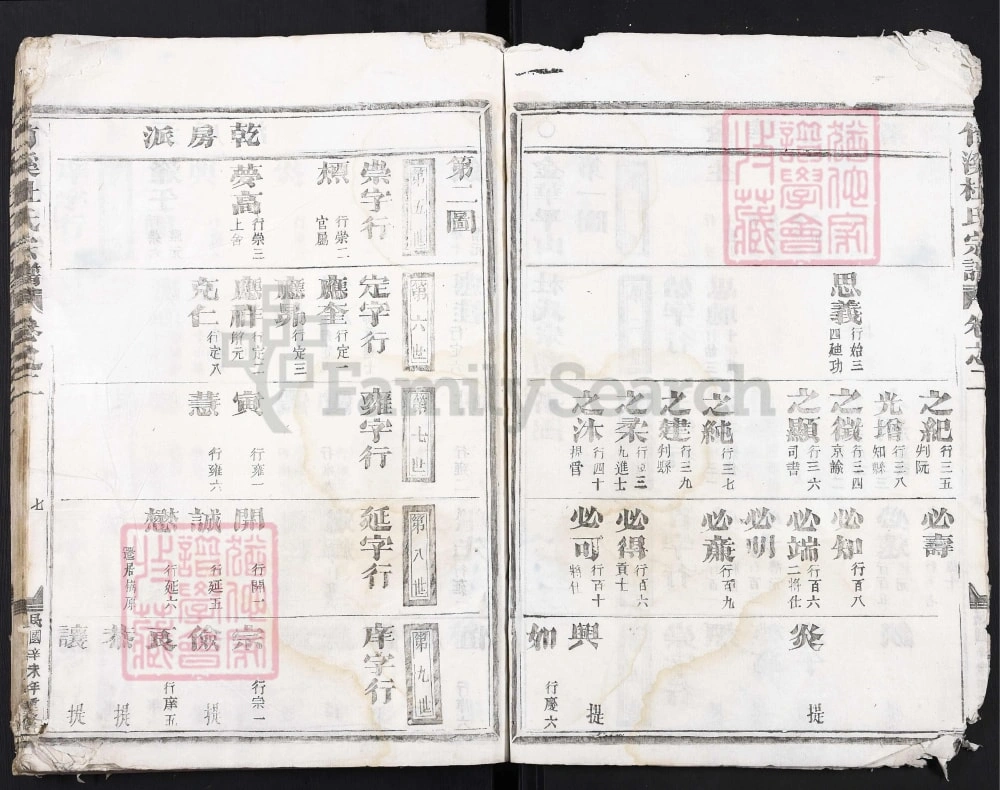 竹溪杜氏宗譜
卷之二
思義
行始三
四廸功
之紀
行三五
判阮
光增
行三八
知縣
之徵
行三四
京諭
之顯
行三六
司書
之純
行三七
之建
行三九
判縣
之柔
九進士
之沐
行四十
必壽
必知
行百八
必端
行百六
二將仕
必明
必薦
行百九
必得
行百六
貢士
必可
行百十
將仕
炎
提
興
提
如
行慶六
第二圖
乾房派
第五世
崇字行
行崇二
官屬
夢高
行崇三
上舍
第六世
定字行
應奎
行定一
應昴
行定三
應祖
行定二
解元
克仁
行定八
第七世
雍字行
寅
行雍一
慧
行雍六
第八世
延字行
開
行開一
誠
行延五
懋
行延六
第九世
庠字行
宗
行宗一
儉
提
真
行庠五
恭
提
讓
提
卷之二
七
民國辛未年重修
猶他家譜學會收藏
FamilySearch